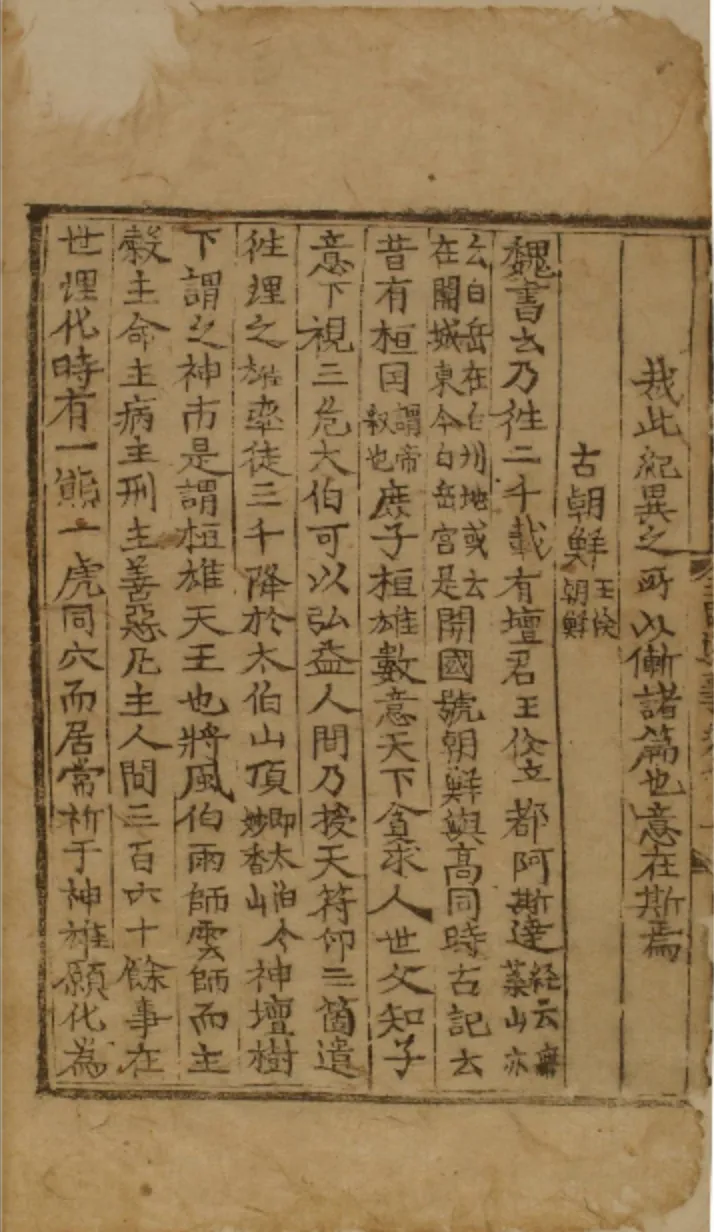 㦲此紀異之所以慚諸篇也意在斯焉
古朝鮮王倹朝鮮
魏書云乃徃二千載有壇君王倹立都阿斯達経云無葉山亦
云白岳在白州地或云在開城東今白岳宮是開國號朝鮮與高同時古記云
昔有桓囯謂帝釈也庶子桓雄數意天下貪求人世父知子
意下視三危大伯可以弘益人間乃授天符印三箇遣
徃理之雄率徒三千降於太伯山頂即太伯今妙香山神壇樹
下謂之神市是謂桓雄天王也將風伯雨師雲師而主
糓主命主病主刑主善惡凡主人間三百六十餘事在
世理代時有一熊一虎同穴而居常祈于神雄願化為